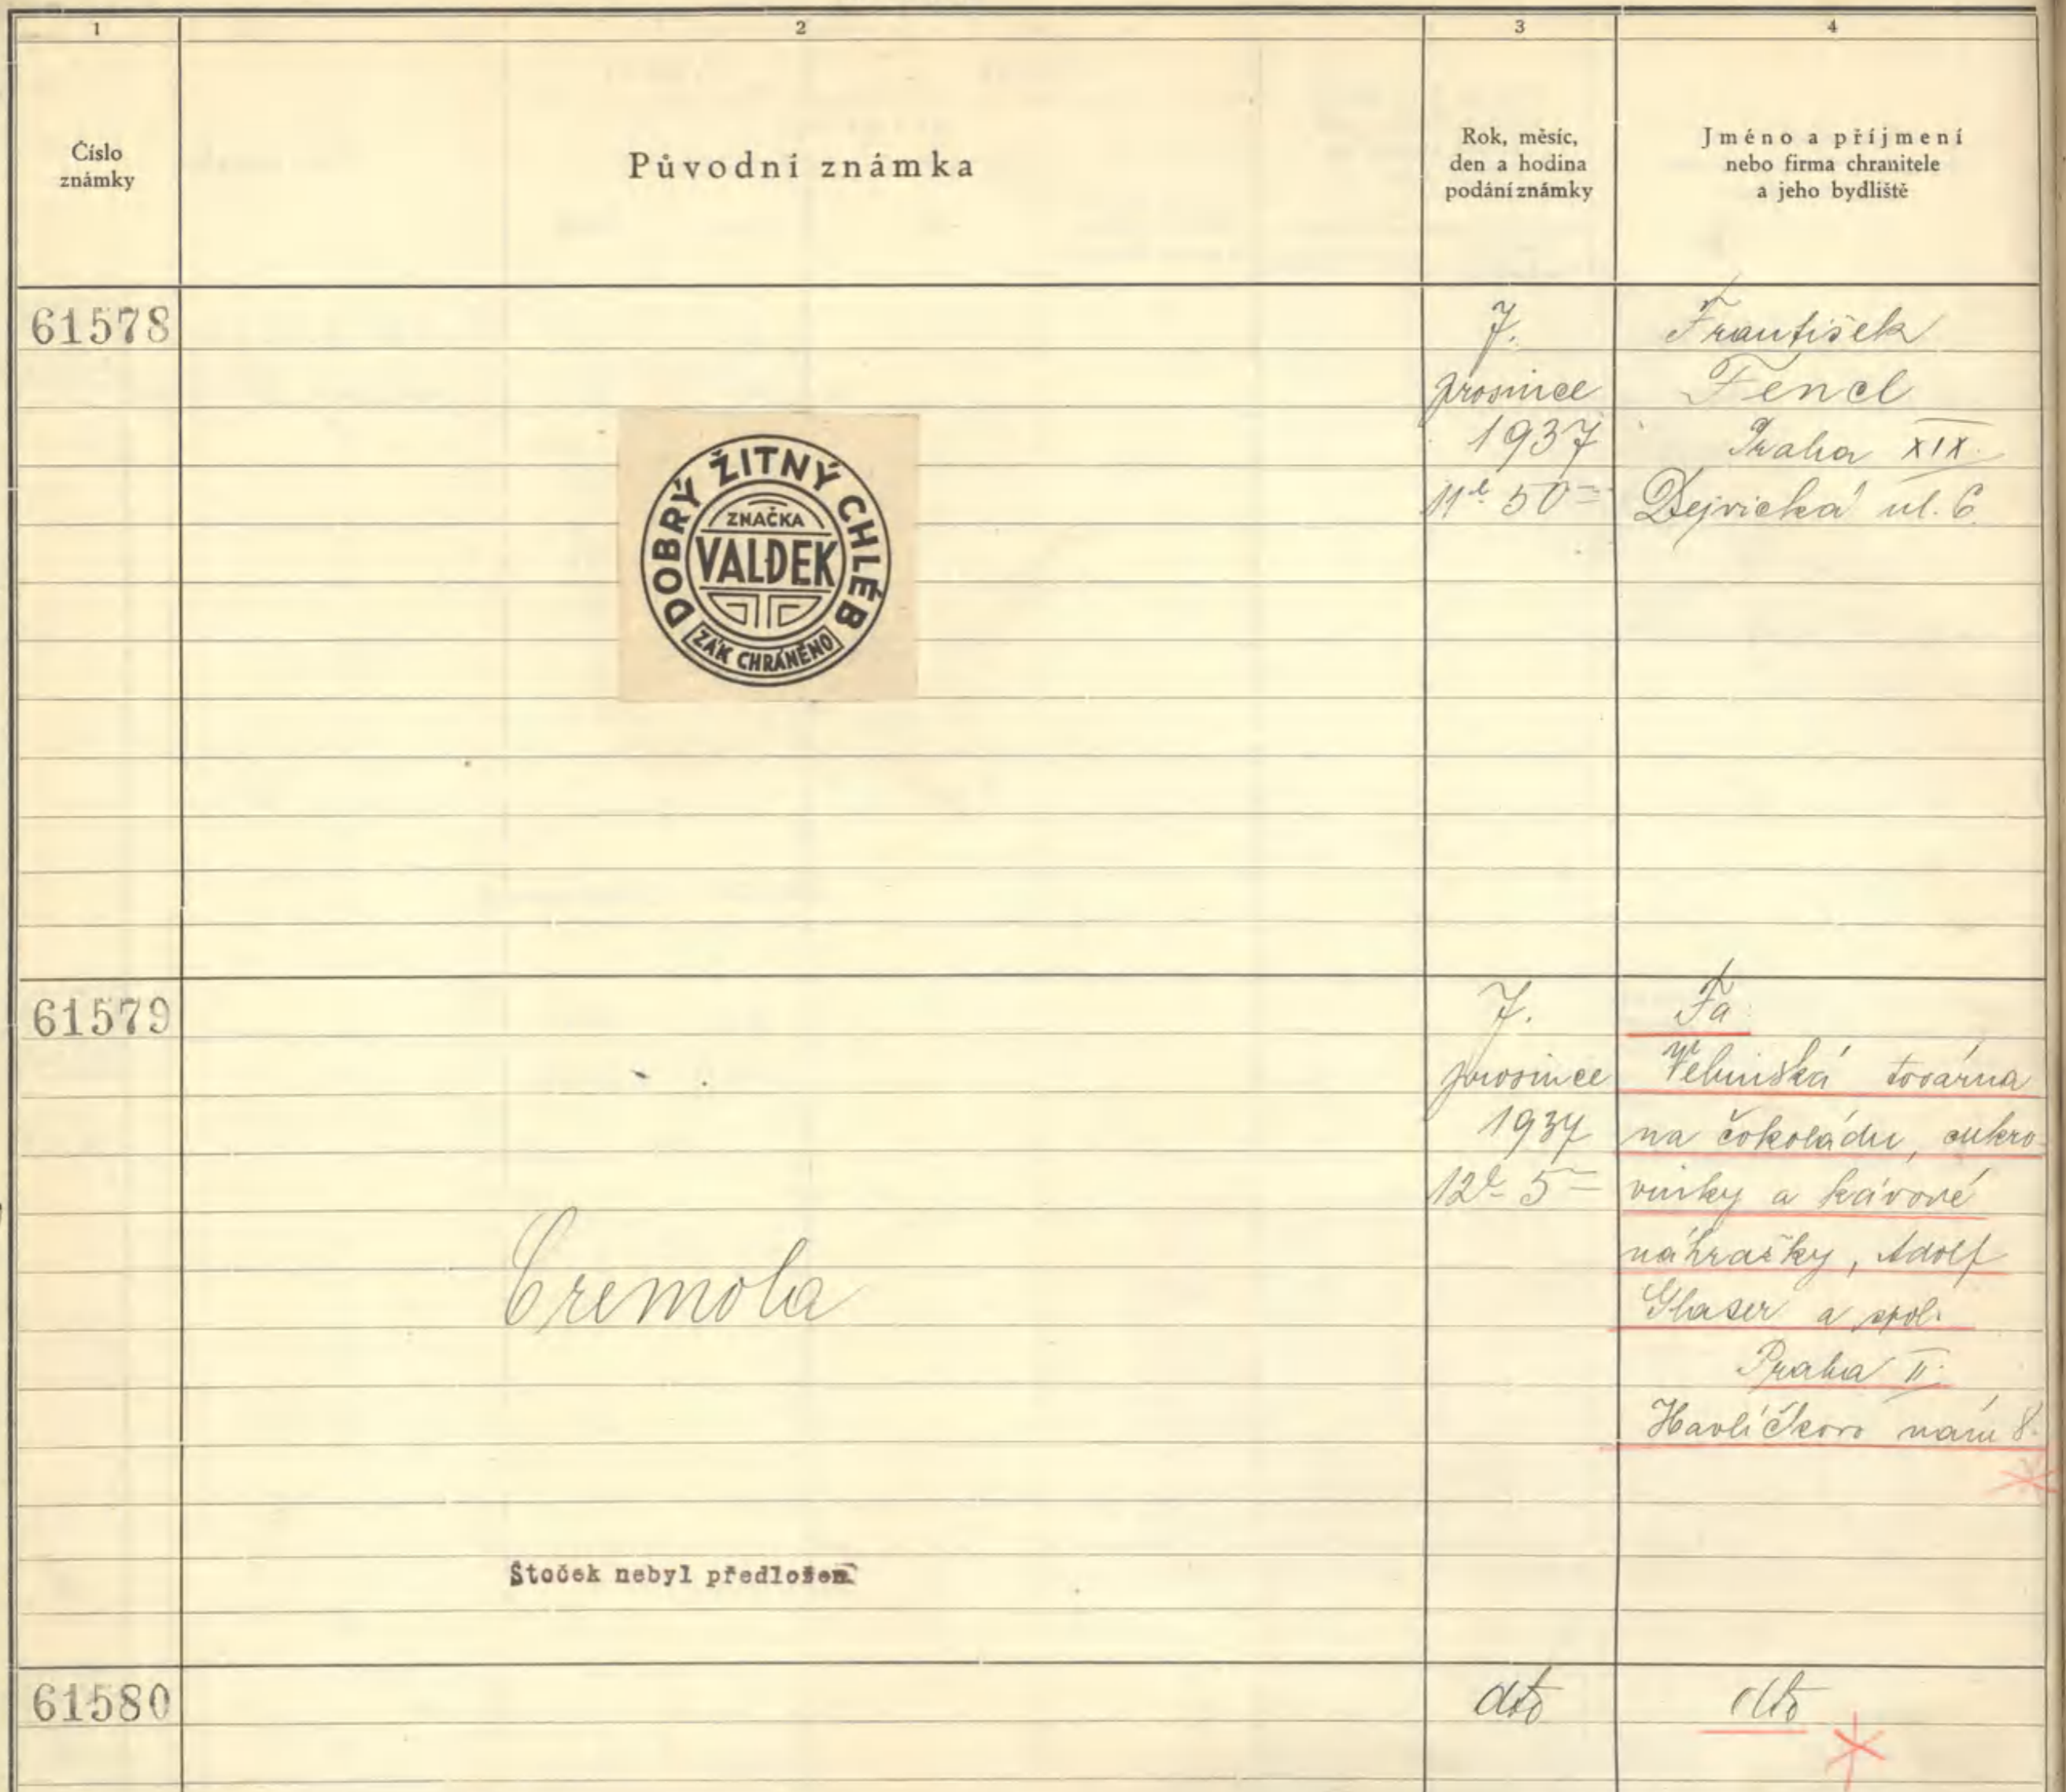 1
2
3
4
Číslo
známky
Původní známka
Rok, měsíc,
den a hodina
podání známky
Jméno a příjmení
nebo firma chranitele
a jeho bydliště
61578
DOBRÝ ŽITNÝ CHLÉB
ZNAČKA
VALDEK
ZÁK CHRÁNĚNO
7.
prosince
1937
11h 50m
František
Fencl
Praha XIX.
Dejvická ul. 6.
61579
Cremola
Štoček nebyl předložen
7.
prosince
1937
12h 5m
Fa
Velimská továrna
na čokoládu, cukro
vinky a kávové
náhražky, Adolf
Glaser a spol.
Praha II.
Havlíčkovo nám 8.
61580
dto
dto